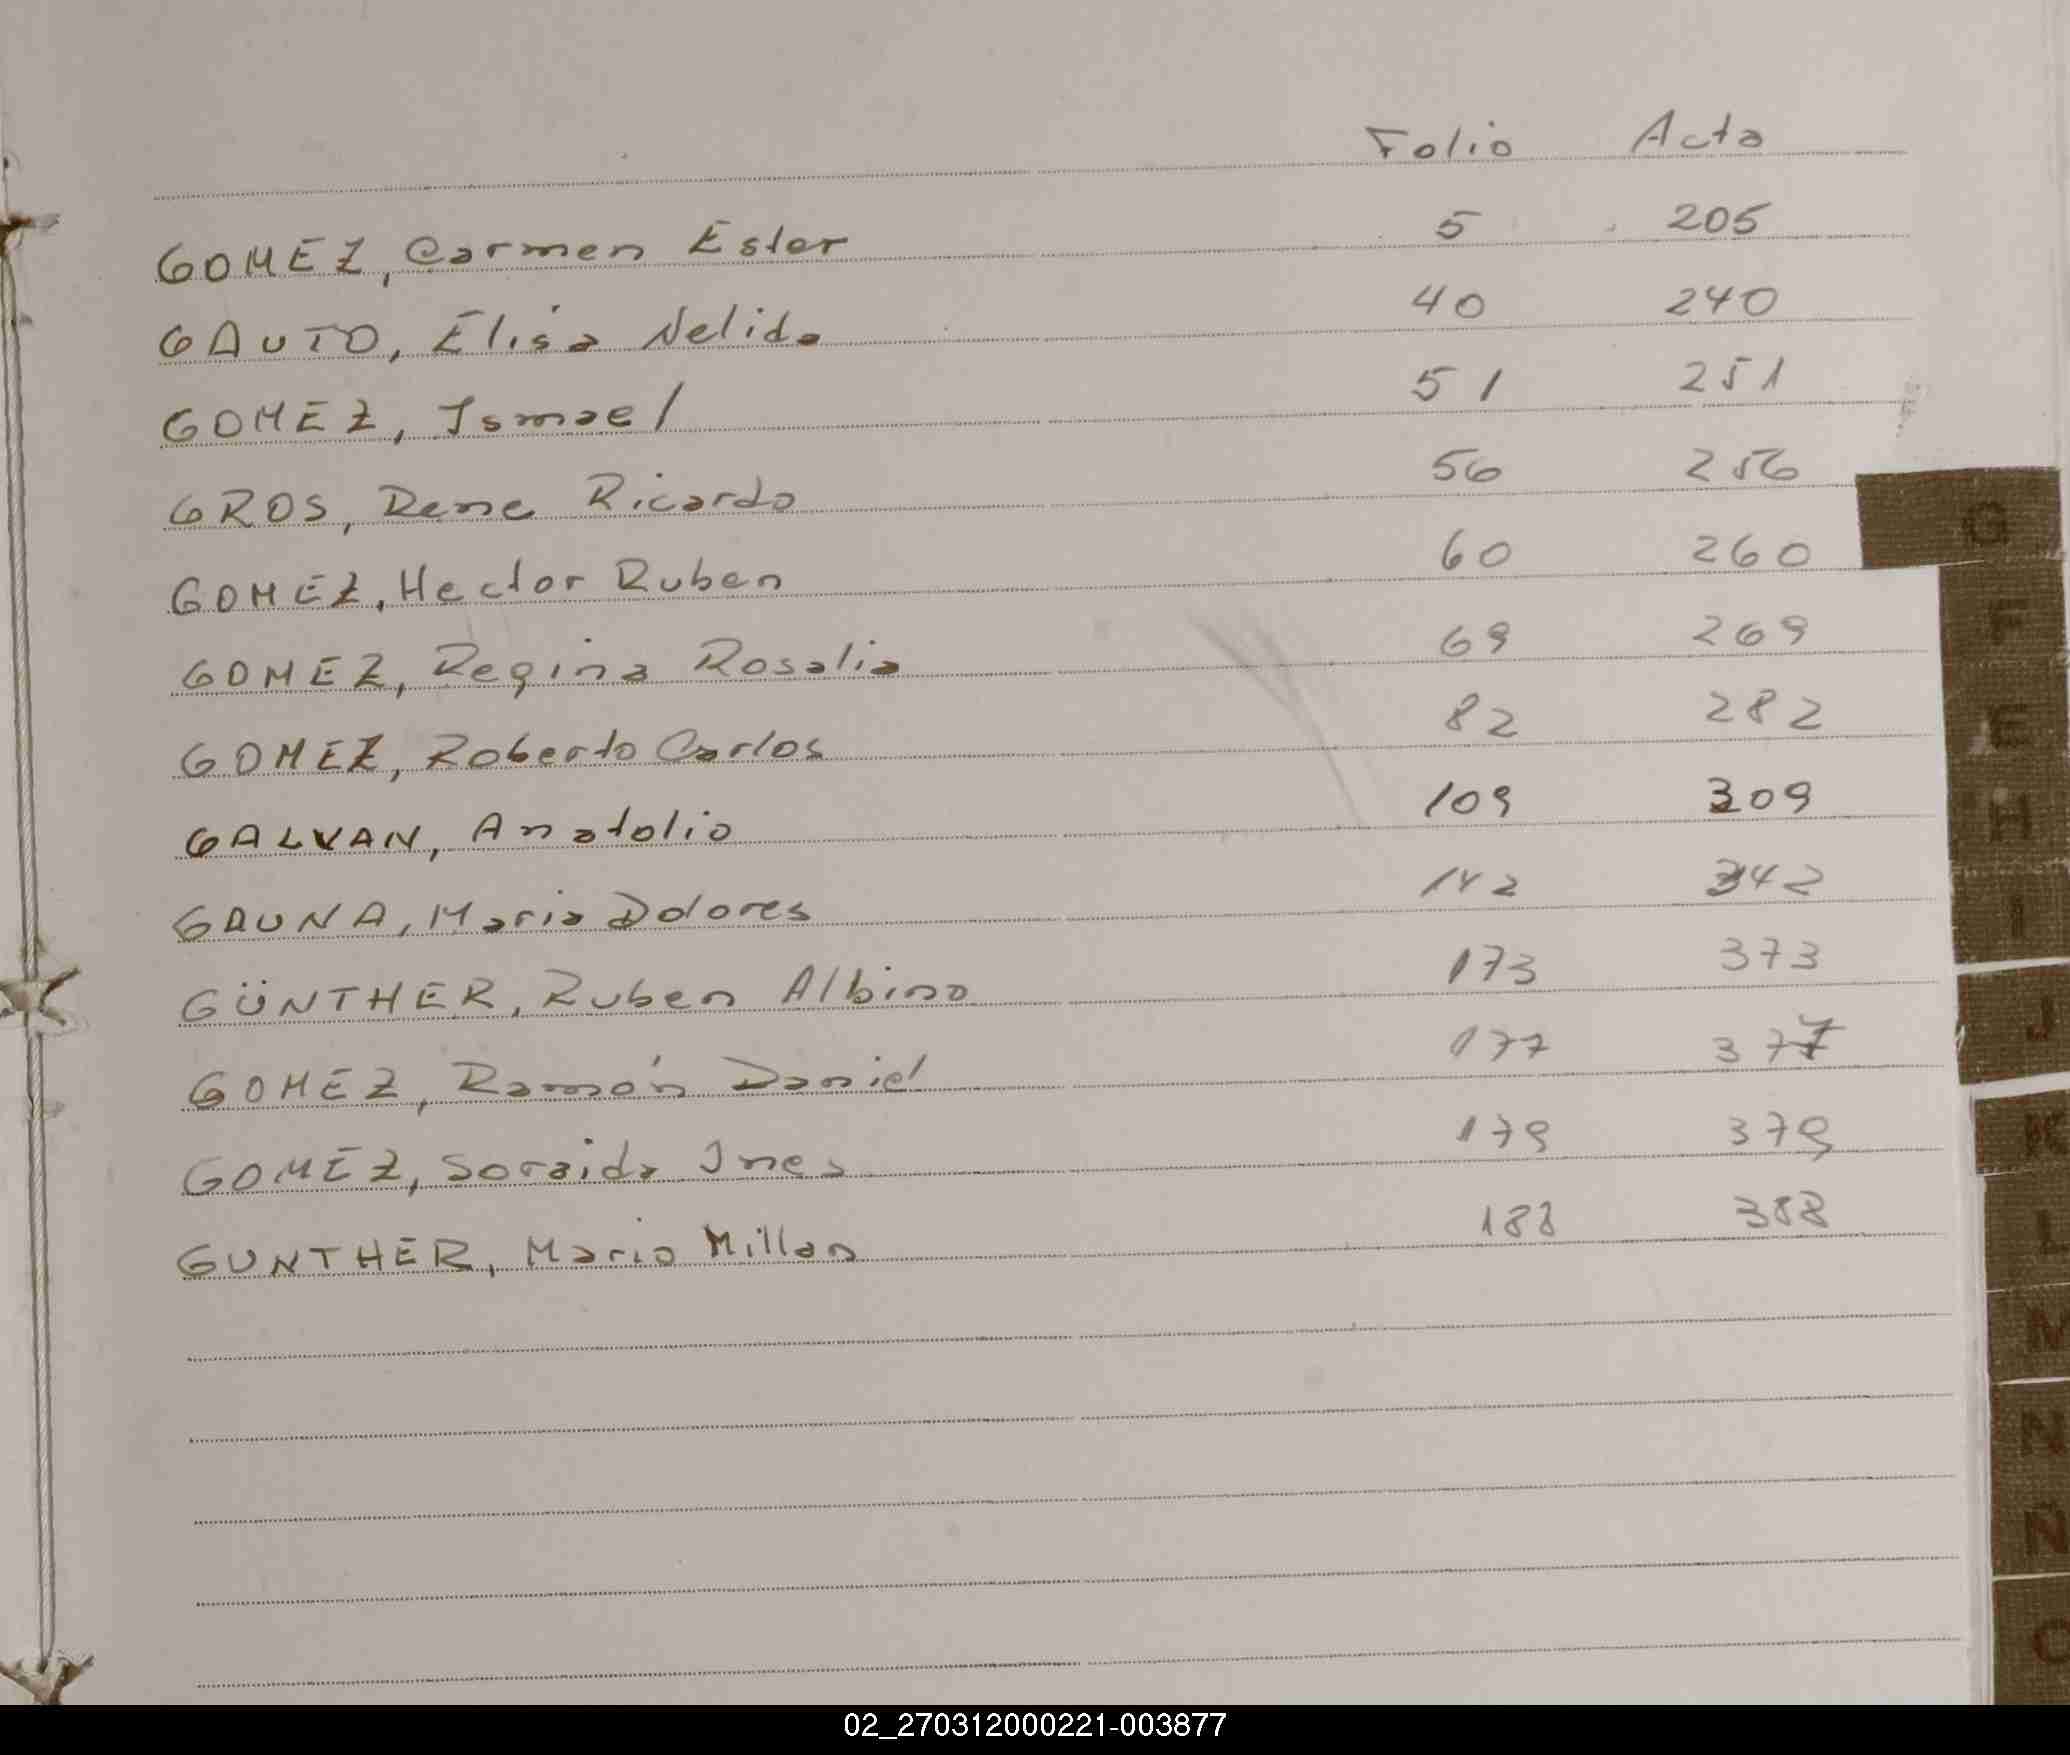 Folio Acta
GOMEZ, Carmen Ester 5 205
GAUTO, Elisa Nelida 40 240
GOMEZ, Ismael 51 251
GROS, Rene Ricardo 56 256
GOMEZ, Hector Ruben 60 260
GOMEZ, Regina Rosalia 69 269
GOMEZ, Roberto Carlos 82 282
GALVAN, Anatolio 109 309
GAUNA, Maria Dolores 142 342
GÜNTHER, Ruben Albino 173 373
GOMEZ, Ramón Daniel 177 377
GOMEZ, Soraida Ines 179 379
GUNTHER, Mario Millan 188 388
G
F
E
H
I
J
K
L
M
N
Ñ
O
02_270312000221-003877